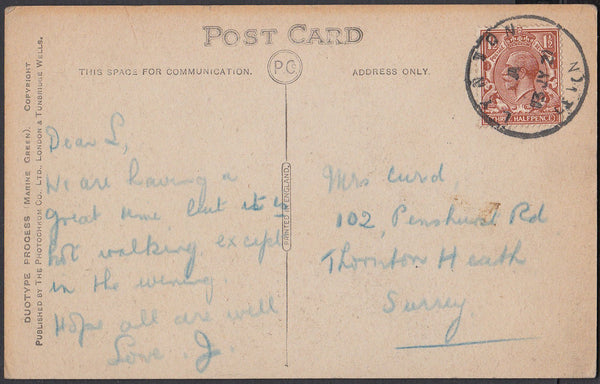 POST CARD
THIS SPACE FOR COMMUNICATION.
P.C.
ADDRESS ONLY.
DUOTYPE PROCESS (MARINE GREEN). COPYRIGHT.
PUBLISHED BY THE PHOTOCHROM CO. LTD. LONDON & TUNBRIDGE WELLS.
PRINTED IN ENGLAND.
Dear L,
We are having a
great time but it is
hot walking except
in the evening.
Hope all are well
Love. J.
Mrs Curd,
102, Penshurst Rd
Thornton Heath
Surrey
THREE HALFPENCE